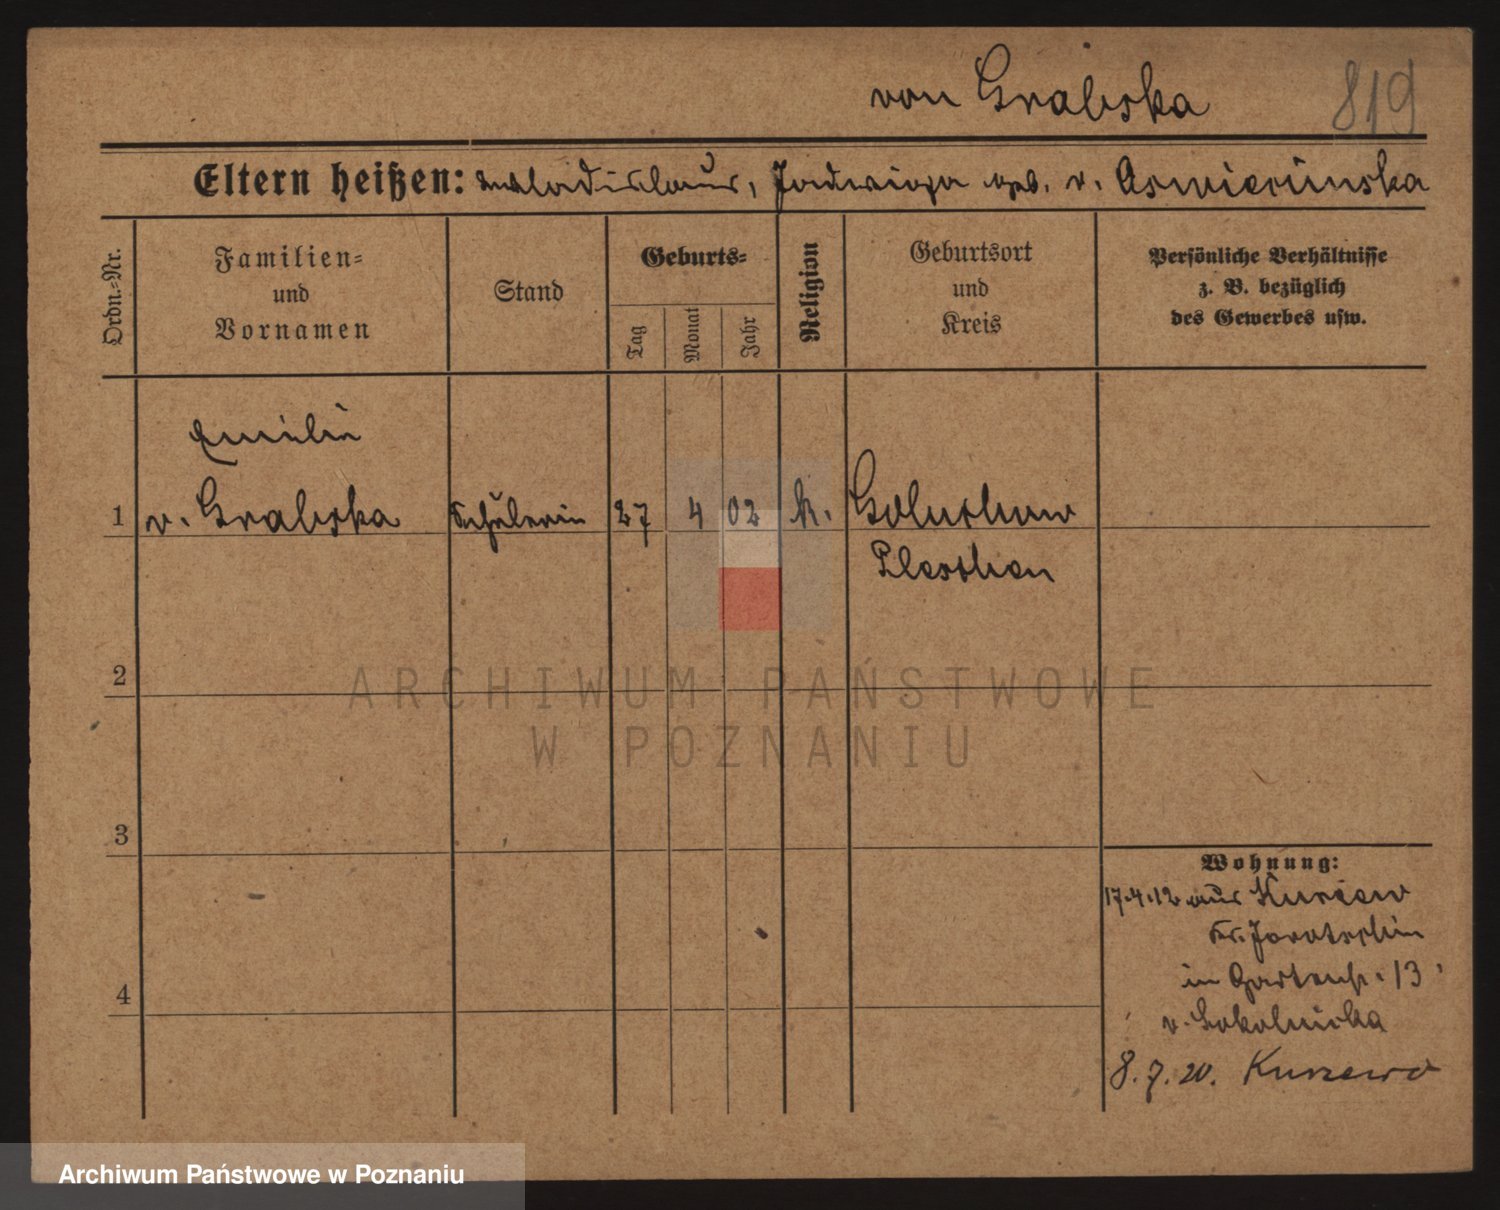 von Grabska 819
Eltern heißen: Wladislaus, Jadwiga geb. v.
Ordn.-Nr.
Familien-
und
Vornamen
Stand
Geburts-
Tag
Monat
Jahr
Religion
Geburtsort
und
Kreis
Persönliche Verhältnisse
z. B. bezüglich
des Gewerbes usw.
Emilie
1 v. Grabska Schülerin 27 4 02 k. Goluchow
Pleschen
2
ARCHIWUM PAŃSTWOWE
W POZNANIU
3
Wohnung:
17.4.12 aus Kurcew
Kr. Jarotschin
in Gartenstr. 13
4
v. Sokolnicka
8.7.20. Kurzewo
Archiwum Państwowe w Poznaniu